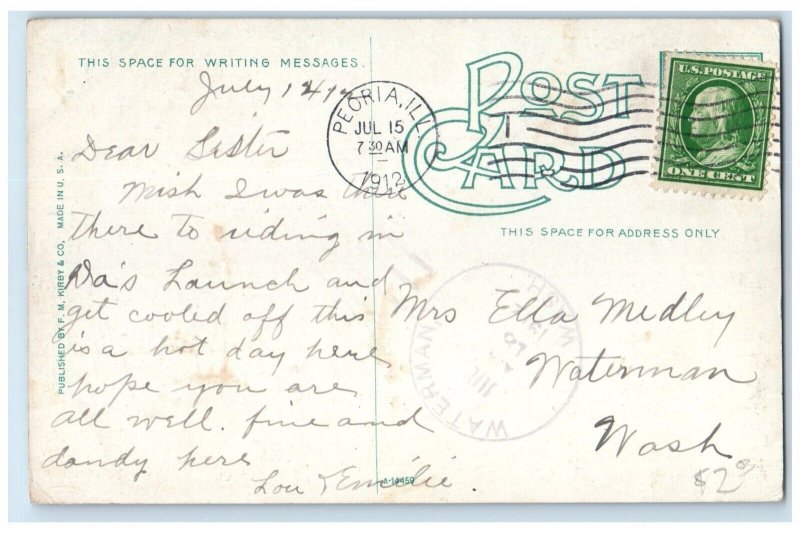 THIS SPACE FOR WRITING MESSAGES.
POST CARD
PEORIA, ILL.
JUL 15
7 30 AM
1912
U.S. POSTAGE
ONE CENT
THIS SPACE FOR ADDRESS ONLY.
PUBLISHED BY F. M. KIRBY & CO., MADE IN U. S. A.
July 14 12
Dear Sister
Wish I was there
there to riding in
Da's Launch and
get cooled off this
is a hot day here
hope you are
all well. fine and
dandy here
Lou & Emilie.
A-14459
WATERMAN, WASH
JUL
Mrs Ella Medley
Waterman
Wash
$2